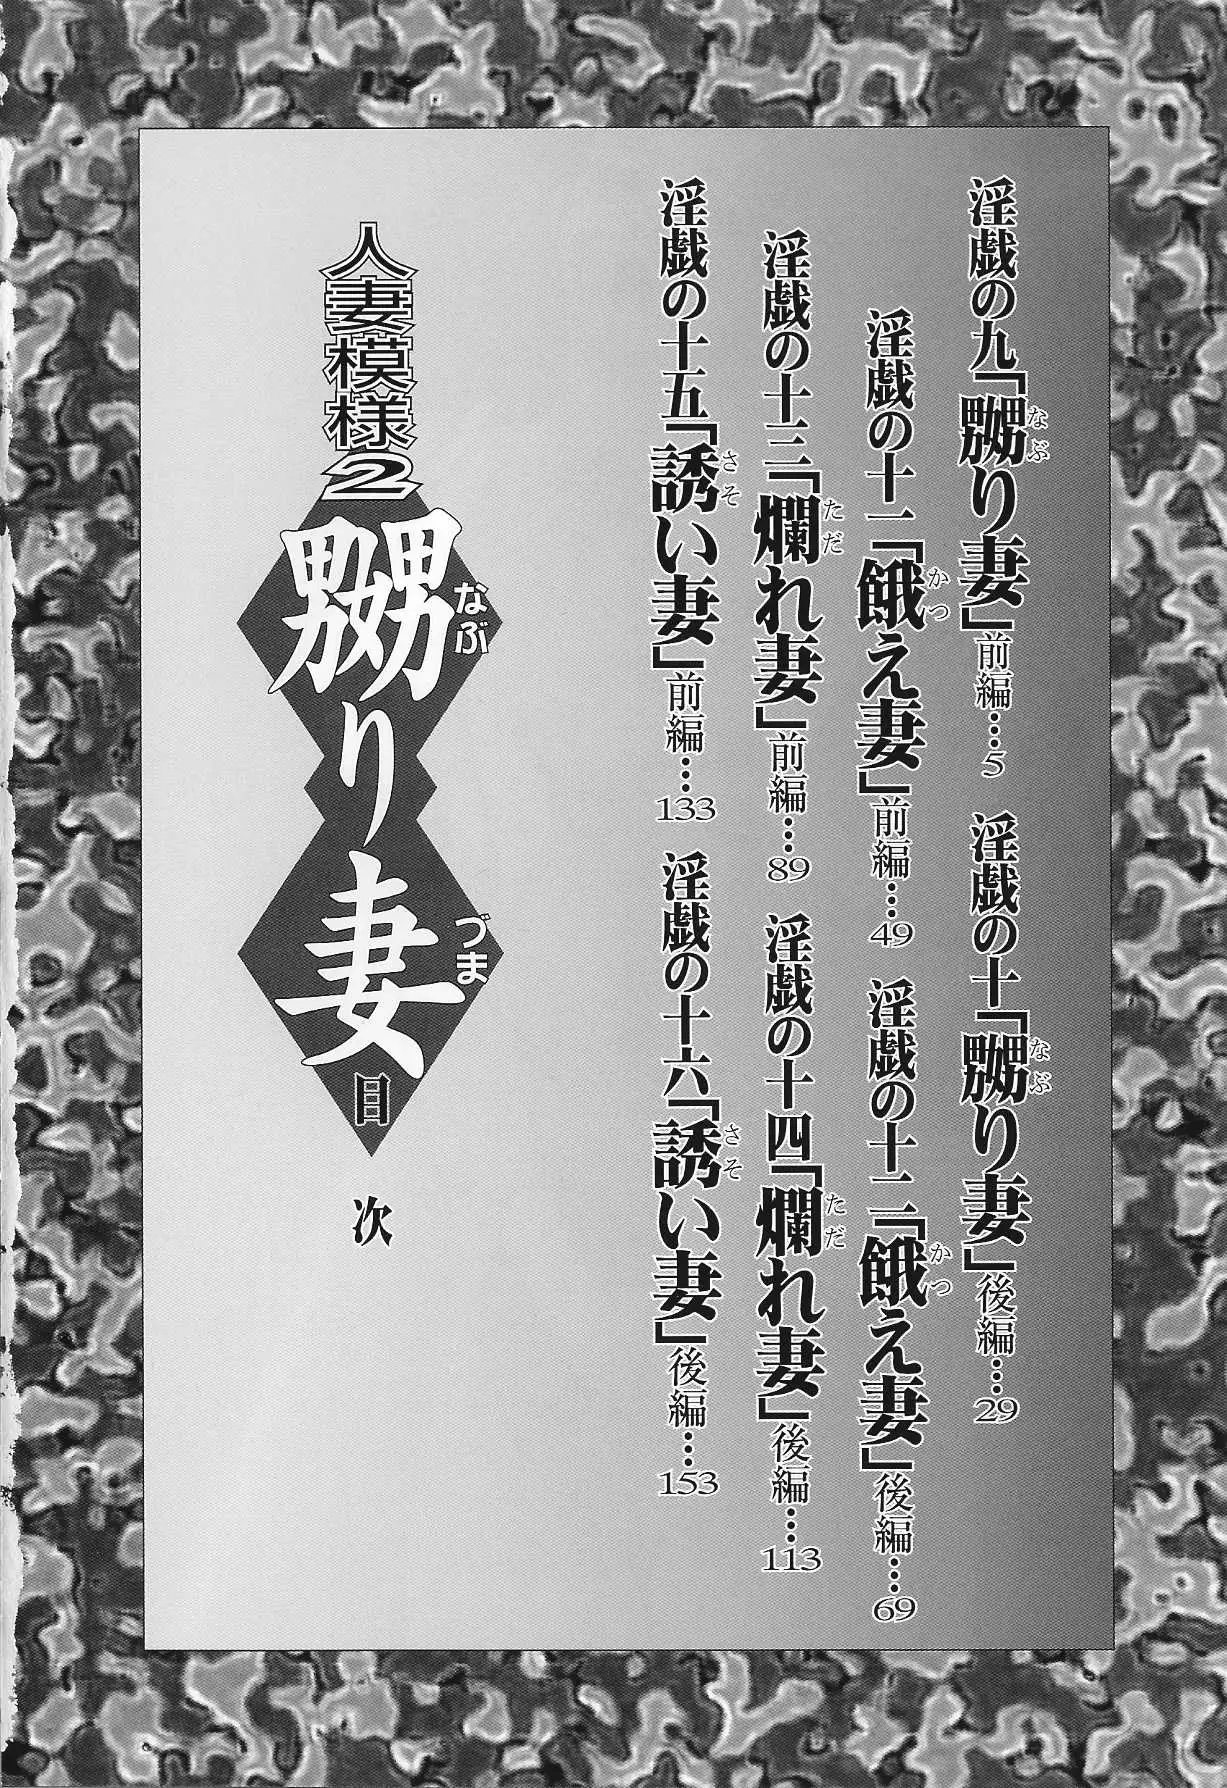 淫戯の九「嬲り妻」前編…5
なぶ
淫戯の十「嬲り妻」後編…29
なぶ
淫戯の十一「餓え妻」前編…49
かつ
淫戯の十二「餓え妻」後編…69
かつ
淫戯の十三「爛れ妻」前編…89
ただ
淫戯の十四「爛れ妻」後編…113
ただ
淫戯の十五「誘い妻」前編…133
さそ
淫戯の十六「誘い妻」後編…153
さそ
人妻模様2
嬲り妻
なぶ づま
目次